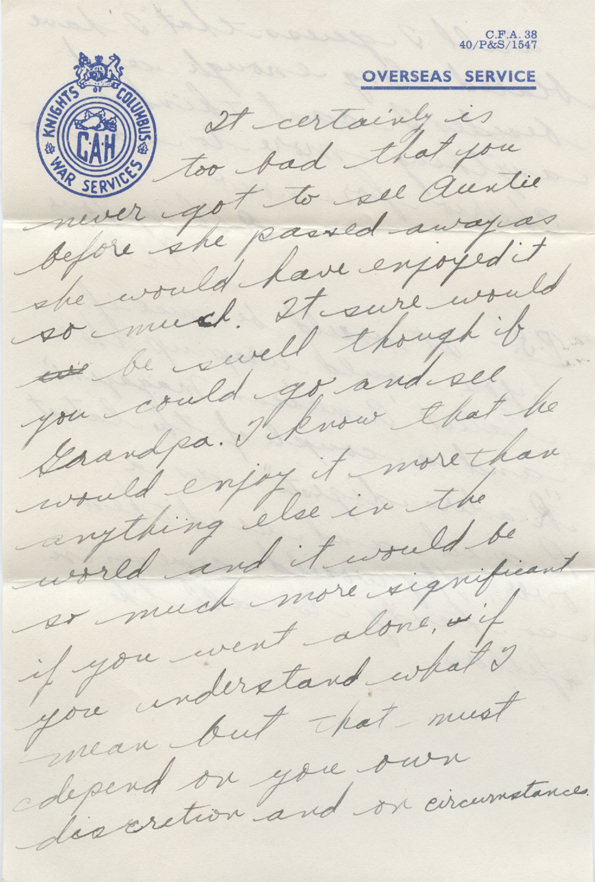 C.F.A. 38
40/P&S/1547
OVERSEAS SERVICE
KNIGHTS OF COLUMBUS
WAR SERVICES
CAH
It certainly is
too bad that you
never got to see Auntie
before she passed away as
she would have enjoyed it
so much. It sure would
be swell though if
you could go and see
Grandpa. I know that he
would enjoy it more than
anything else in the
world and it would be
so much more significant
if you went alone, if
you understand what I
mean but that must
depend on you own
discretion and on circumstances.